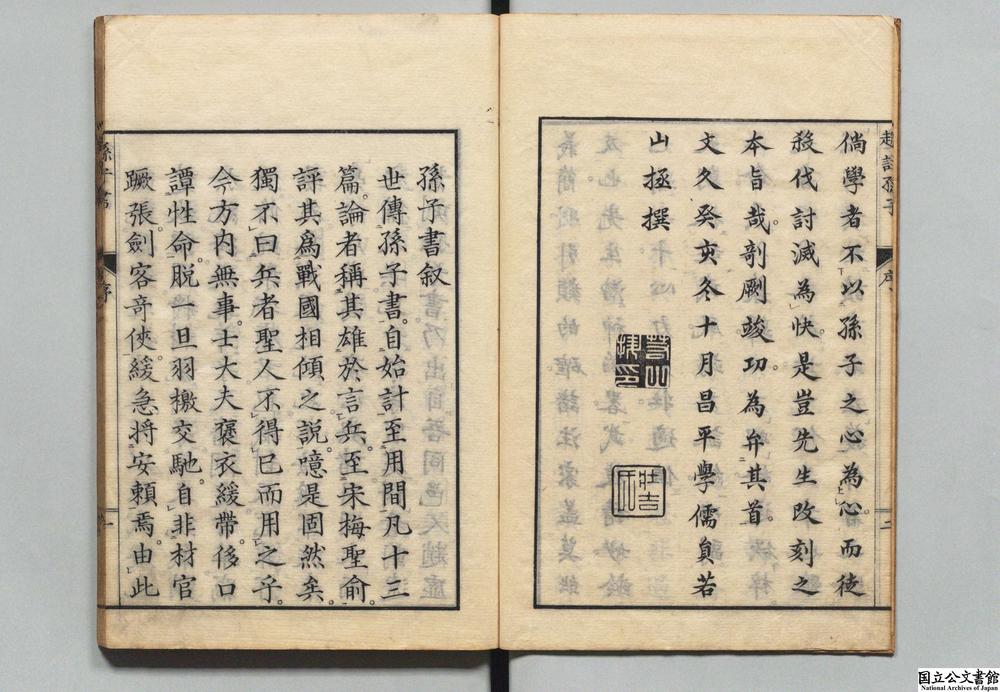 趙註孫子
序
二
倘學者不以孫子之心為心而徒
殺伐討滅為快是豈先生改刻之
本旨哉剞劂竣功為弁其首
文久癸亥冬十月昌平學儒員若
山拯撰
孫子書叙
世傳孫子書自始計至用間凡十三
篇論者稱其雄於言兵至宋梅聖俞
評其爲戰國相傾之說噫是固然矣
獨不曰兵者聖人不得已而用之乎
今方內無事士大夫褒衣緩帶侈口
譚性命脫一旦羽檄交馳自非材官
蹶張劍客奇俠緩急將安賴焉由此
孫子書
序
一
国立公文書館
National Archives of Japan